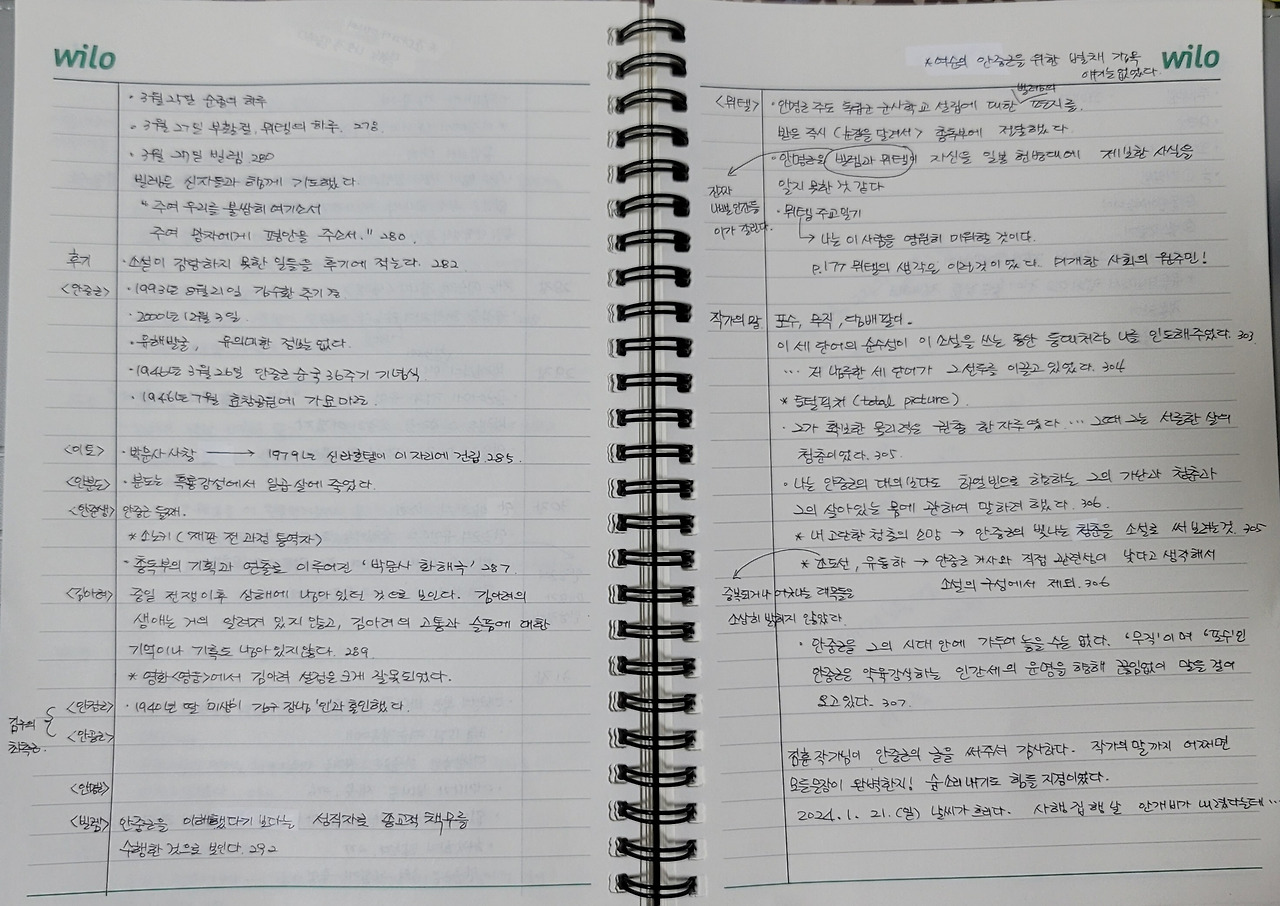 wilo
· 3월 25일 순종의 하루
· 3월 27일 부활절, 뮈텔의 하루. 278
· 3월 27일 빌렘 280
빌렘은 신자들과 함께 기도했다.
" 주여 우리를 불쌍히 여기소서
주여 망자에게 평안을 주소서." 280.
후기 · 소설이 감당하지 못한 일들을 후기에 적는다. 282
<안중근> · 1993년 8월 21일 김수환 추기경
· 2000년 12월 3일.
· 유해발굴, 유의미한 정보는 없다.
· 1946년 3월 26일 안중근 순국 36주기 기념식
· 1946년 7월 효창공원에 가묘 마련.
<이토> · 박문사 사찰 → 1979년 신라호텔이 이 자리에 건립. 285.
<안분도> · 분도는 북만주에서 일곱 살에 죽었다.
<안준생> 안중근 둘째.
* 소노키 (재판 전 과정 통역자)
· 총독부의 기획과 연출로 이루어진 '박문사 화해극' 287.
<김아려> 중일 전쟁이후 상해에 남아 있던 것으로 보인다. 김아려의
생애는 거의 알려져 있지 않고, 김아려의 고통과 슬픔에 대한
기억이나 기록도 남아있지않다. 289
* 영화<영웅>에서 김아려 설정은 크게 잘못되었다.
김구의
<안정근> · 1940년 딸 '미생'이 김구 장남 '인'과 혼인했다.
<안공근>
<안명근>
<빌렘> 안중근을 이해했다기 보다는 성직자로 종교적 책무를
수행한 것으로 보인다. 292
* 여순의 안중근을 위한 변호 기록
얘기는 없었다.
wilo
빌렘의
<뮈텔> · 안명근 주도 독립군 군사학교 설립에 대한 편지를.
받은 즉시 (눈길을 달려서) 총독부에 전달했다.
· 안명근은 빌렘과 뮈텔이 자신을 일본 헌병대에 제보한 사실을
알지 못한 것 같다
진짜
나쁜 인간들
이가 갈린다.
· 뮈텔 주교 일기
→ 나는 이 사람을 영원히 미워할 것이다.
p.177 뮈텔의 생각은 이런것이었다. 미개한 사회의 원주민!
작가의 말 포수, 무직, 담배팔이.
이 세 단어의 순수성이 이 소설을 쓰는 동안 등대처럼 나를 인도해주었다. 303
… 저 남루한 세 단어가 그 선두를 이끌고 있었다. 304
* 토탈픽처 (total picture).
· 그가 확보한 물리력은 권총 한 자루였다 … 그때 그는 서른한 살의
청춘이었다. 305.
· 나는 안중근의 대의보다도 하얼빈으로 향하는 그의 가난과 청춘과
그의 살아있는 몸에 관하여 말하려 했다. 306.
* 내 고단한 청춘의 소망 → 안중근의 빛나는 청춘을 소설로 써 보려는것. 305
* 조도선, 유동하 → 안중근 거사와 직접 관련성이 낮다고 생각해서
소설의 구성에서 제외. 306
중복되거나 어긋나는 대목들을
소상히 밝히지 않았다.
· 안중근을 그의 시대 안에 가두어 놓을 수는 없다. '무직'이며 '포수'인
안중근은 약육강식하는 인간세의 운명을 향해 끊임없이 말을 걸어
오고 있다. 307
김훈 작가님이 안중근의 글을 써주셔 감사하다. 작가의 말까지 어쩌면
모든문장이 완벽한지! 숨소리내기도 힘들 지경이었다.
2024. 1. 21. (일) 날씨가 흐리다. 사형집행 날 안개비가 내렸다는데 …